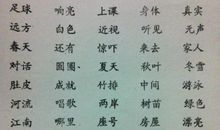 足球 响亮 上课 身体 真实
远方 白色 近视 听见 元声
春天 还有 惊吓 来去 家人
对话 圆圆 夏天 秋叶 冬雪
肚皮 成就 竹排 中间 游泳
河流 唱歌 两岸 树苗 绿色
江南 哪里 座号 房屋 漂亮